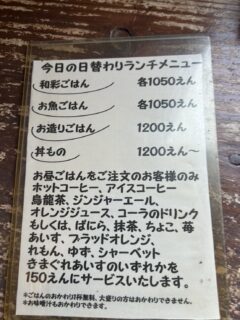 今日の日替わりランチメニュー
和彩ごはん 各1050えん
お魚ごはん 各1050えん
お造りごはん 1200えん
丼もの 1200えん～
お昼ごはんをご注文のお客様のみ
ホットコーヒー、アイスコーヒー
烏龍茶、ジンジャーエール、
オレンジジュース、コーラのドリンク
もしくは、ばにら、抹茶、ちょこ、苺
あいす、ブラッドオレンジ、
れもん、ゆず、シャーベット
きまぐれあいすのいずれかを
150えんにサービスいたします。
※ごはんのおかわり1杯無料、大盛りの方はおかわりできません。
※お味噌汁もおかわりできます。